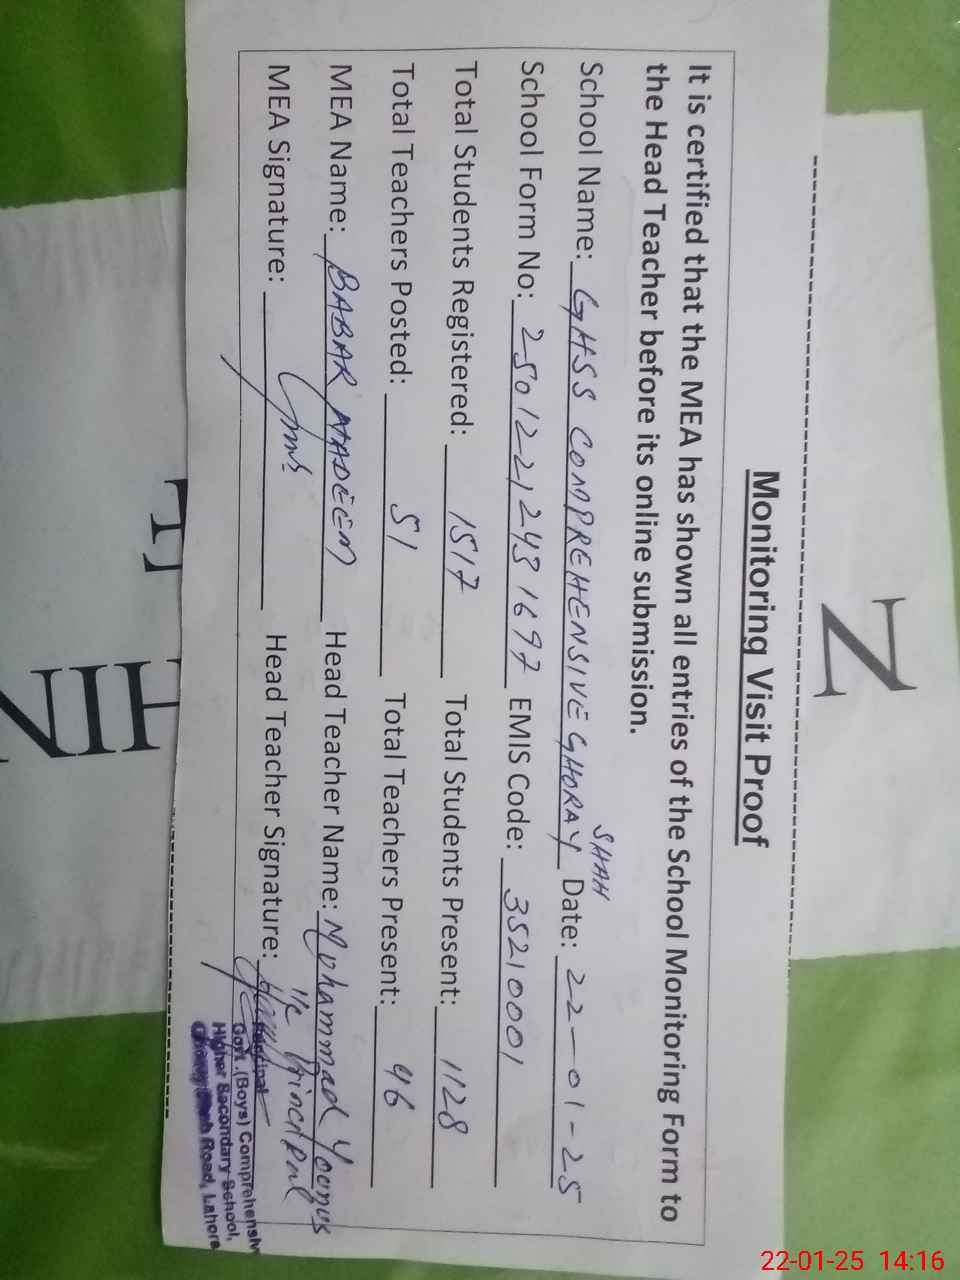 Monitoring Visit Proof
It is certified that the MEA has shown all entries of the School Monitoring Form to
the Head Teacher before its online submission.
School Name: GHSS COMPREHENSIVE GHORAY SHAH Date: 22-01-25
School Form No: 25012212431697 EMIS Code: 35210001
Total Students Registered: 1517 Total Students Present: 1128
Total Teachers Posted: 51 Total Teachers Present: 46
MEA Name: BABAR NADEEM Head Teacher Name: Muhammad Younus
MEA Signature: Head Teacher Signature:
I/C Principal
Principal
Govt. (Boys) Comprehensive
Higher Secondary School,
Ghoray Shah Road, Lahore
Z
HIN
22-01-25 14:16